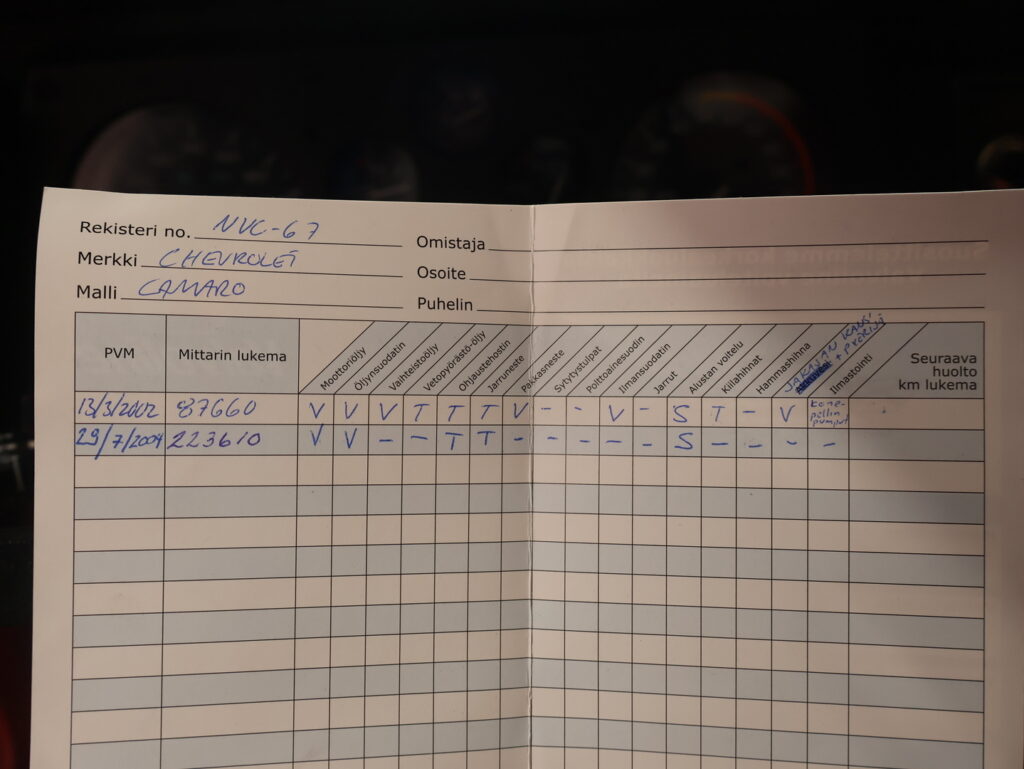 Rekisteri no. NVC-67
Merkki CHEVROLET
Malli CAMARO
Omistaja
Osoite
Puhelin
PVM
Mittarin lukema
Moottoriöljy
Öljynsuodatin
Vaihteistoöljy
Vetopyörästö-öljy
Ohjaustehostin
Jarruneste
Pakkasneste
Sytytystulpat
Polttoainesuodin
Ilmansuodatin
Jarrut
Alustan voitelu
Kiilahihnat
Hammashihna
JAKAJAN KANSI
+ PYÖRIJÄ
Ilmastointi
Seuraava
huolto
km lukema
13/3/2002 87660 V V V T T T V - - V - S T - V Kone-
pellin
pumput
29/7/2004 223610 V V - - T T - - - - - S - - - -